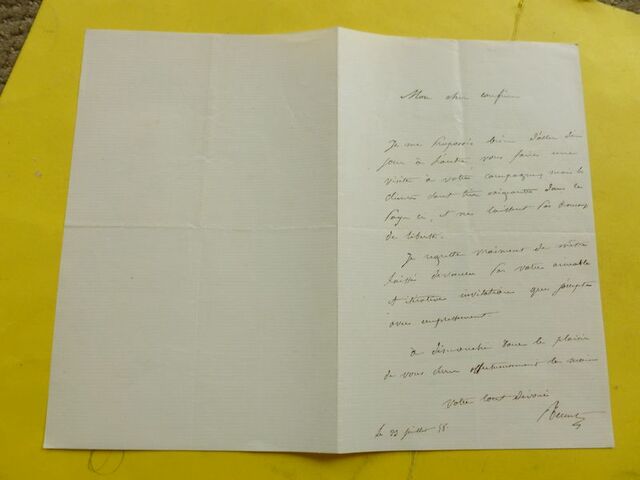 Mon cher confrère
Je me proposais bien d'aller d'un
jour à l'autre vous faire une
visite à votre campagne, mais les
dont très exigeants dans ce
pays ci, et ne laissent pas
de liberté.
Je regrette vraiment de m'être
laissé devancer par votre aimable
et invitation que j'accepte
avec empressement
à dimanche donc le plaisir
de vous serrer affectueusement la main
Votre tout dévoué
le 22 juillet 58